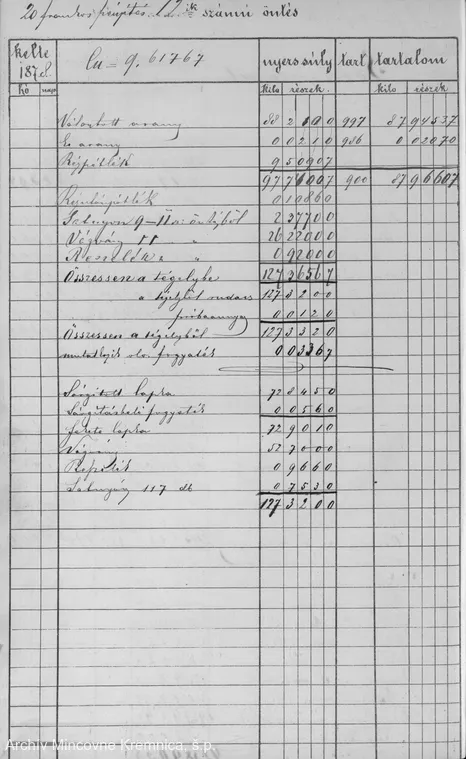 20 frankos pénzöntés 12ik számú öntés
kelte nyers súly tart. tartalom
187
hó nap kilo részek kilo részek
Cu = 9.61767
Választott arany 88 2100 997 87 94537
Er arany 0 0210 986 0 02070
Rézpótlék 9 50907
97 71007 900 87 96607
Rézpótlék 0 10860
9–11 öntésből 2 27700
Végvány 11 " 26 22000
Reszelék " " 0 92000
Összesen a tégelybe 127 36567
a tégelyből rudacs 127 3200
próbaanyag 0 0120
Összesen a tégelyből 127 3320
mutatkozik olv. fogyaték 0 03367
Sárgított lapka 72 8450
Sárgításbeli fogyaték 0 0560
fekete lapka 72 9010
Végvány 52 7000
0 9660
117 db 0 7530
127 3200
Archív Mincovne Kremnica, š.p.